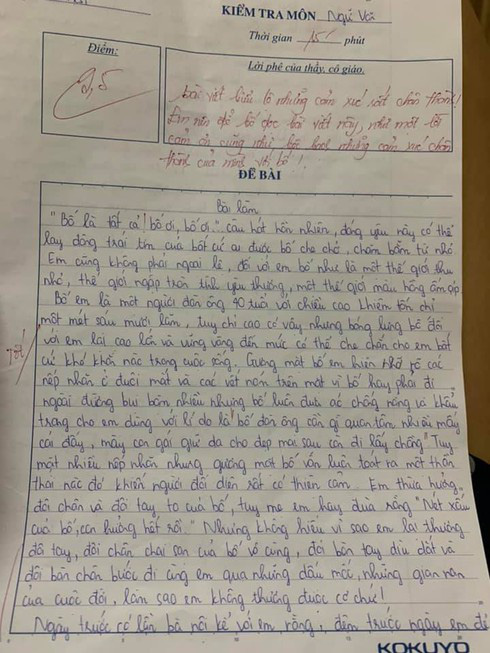 KIỂM TRA MÔN Ngữ Văn
Thời gian 15' phút
Điểm:
Lời phê của thầy, cô giáo.
bài viết biểu lộ những cảm xúc rất chân thành!
Em nên để bố đọc bài viết này, như một lời
cảm ơn cũng như bộc bạch những cảm xúc chân
thành của mình với bố!
ĐỀ BÀI
Bài làm
"Bố là tất cả! bố ơi, bố ơi" câu hát hồn nhiên, đáng yêu này có thể
lay động trái tim của bất cứ ai được bố che chở, chăm bẵm từ nhỏ
Em cũng không phải ngoại lệ, đối với em bố như là một thế giới thu
nhỏ, thế giới ngập tràn tình yêu thương, một thế giới màu hồng ấm áp
Bố em là một người đàn ông 40 tuổi với chiều cao khiêm tốn chỉ
một mét sáu mươi lăm, tuy chỉ cao có vậy nhưng bóng lưng bố đối
với em lại cao lớn và vững vàng đến mức có thể che chắn cho em bất
cứ khó khăn nào trong cuộc sống. Gương mặt bố em hiện rõ các
nếp nhăn ở đuôi mắt và các vết nám trên mặt vì bố hay phải đi
ngoài đường bụi bặm nhiều nhưng bố luôn đưa áo chống nắng và khẩu
trang cho em dùng với lí do là "bố đàn ông cần gì quan tâm nhiều mấy
cái đấy, mày con gái giữ da cho đẹp mai sau còn đi lấy chồng" Tuy
mặt nhiều nếp nhăn nhưng gương mặt bố vẫn luôn toát ra một thần
thái nào đó khiến người đối diện rất có thiện cảm. Em thừa hưởng
đôi chân và đôi tay to của bố, tuy mẹ em hay đùa rằng "Nét xấu
của bố, con hưởng hết rồi." Nhưng không hiểu vì sao em lại thương
đôi tay, đôi chân chai sạn của bố vô cùng, đôi bàn tay dìu dắt và
đôi bàn chân bước đi cùng em qua những dấu mốc, những gian nan
của cuộc đời, làm sao em không thương được cơ chứ!
Ngày trước có lần bà nội kể với em rằng, đêm trước ngày em đẻ
Tốt!
KOKUYO